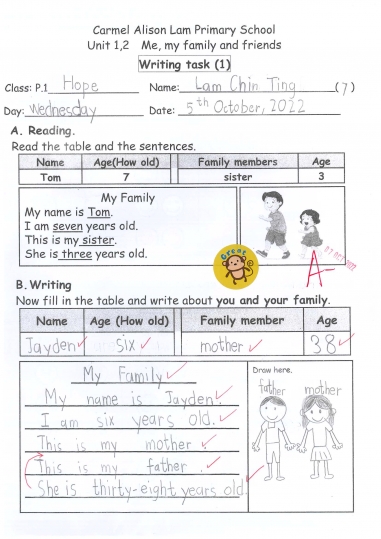 Carmel Alison Lam Primary School
Unit 1,2 Me, my family and friends
Writing task (1)
Class: P.1 Hope Name: Lam Chin Ting (7)
Day: Wednesday Date: 5th October, 2022
A. Reading.
Read the table and the sentences.
Name Age(How old) Family members Age
Tom 7 sister 3
My Family
My name is Tom.
I am seven years old.
This is my sister.
She is three years old.
Great
A-
B. Writing
Now fill in the table and write about you and your family.
Name Age (How old) Family member Age
Jayden six mother 38
My Family
My name is Jayden.
I am six years old.
This is my mother.
This is my father.
She is thirty-eight years old.
Draw here.
father mother